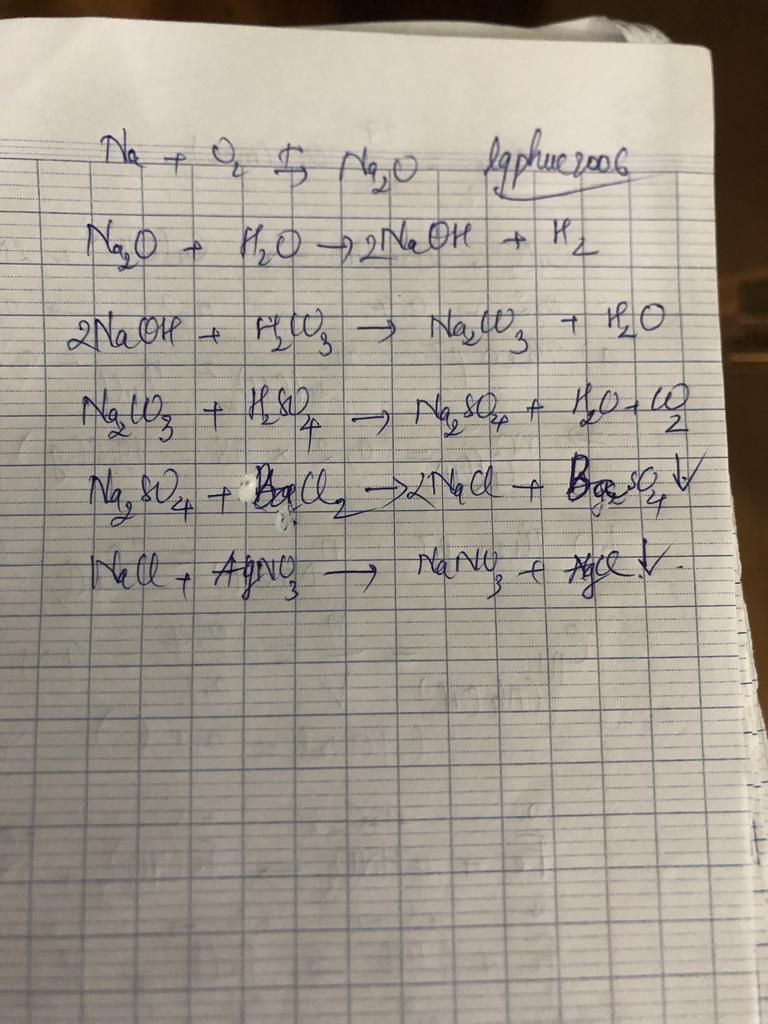 Na + O2 t→ Na2O lgphuc2006
Na2O + H2O → 2NaOH + H2
2NaOH + H2CO3 → Na2CO3 + H2O
Na2CO3 + H2SO4 → Na2SO4 + H2O + CO2
Na2SO4 + BaCl2 → 2NaCl + SO4 ↓
NaCl + AgNO3 → NaNO3 + AgCl ↓.